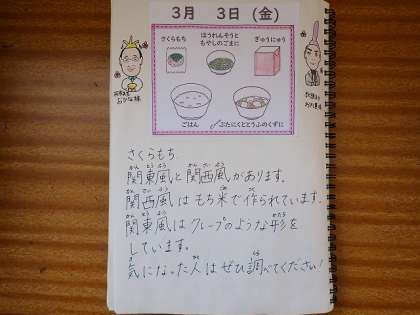 3月 3日(金)
さくらもち
ほうれんそうと
もやしのごまに
ぎゅうにゅう
ごはん
ぶたにくととうふのくずに
さくらもち
関東風と関西風があります。
関西風はもち米で作られています。
関東風はクレープのような形を
しています。
気になった人はぜひ調べてください!